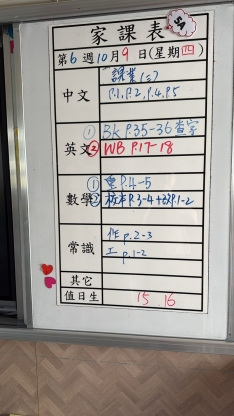 家課表
第6週10月9日(星期四)
中文
課業(三)
P.1, P.2, P.4, P.5
英文
① Bk P.35-36 查字
② WB P.17-18
數學
① 重 P.4-5
② 校本 P.3-4 + P.1-2
常識
作 p.2-3
工 p.1-2
其它
值日生 15 16